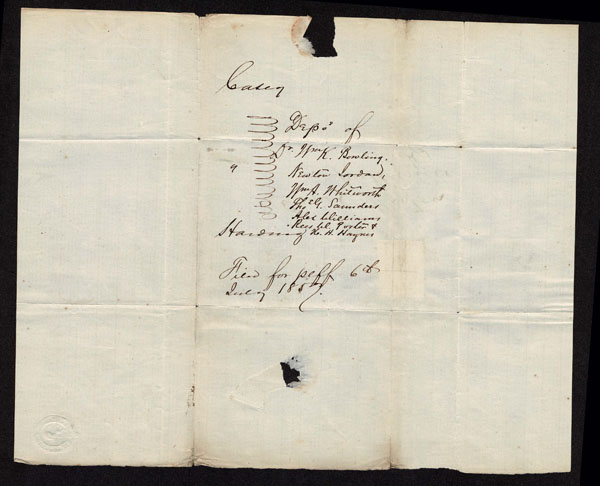 Casey
Depo^s of
Dr. Wm K. Bowling.
Newton Jordan,
Wm A. Whitworth
Tho^s G. Saunders
Alex Williams
Rees W. Porter &
Harding R. H. Haynes
Filed for plff 6th
July 1857.